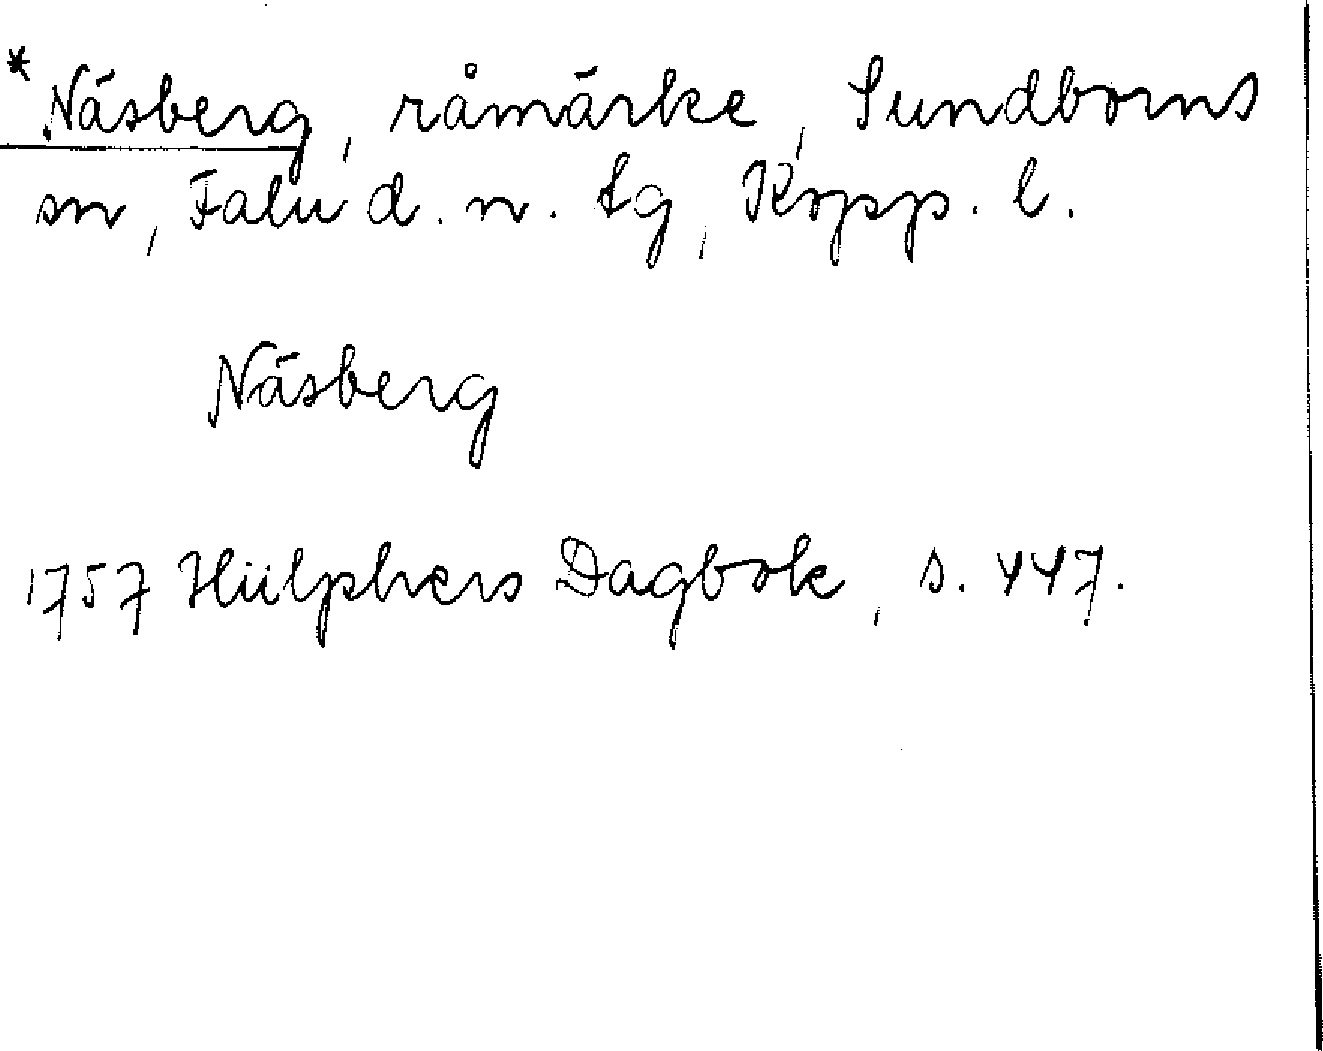 *Näsberg, råmärke, Sundborns
sn, Falu d. n. tg, Kopp. l.
Näsberg
1757 Hülphers Dagbok, s. 447.